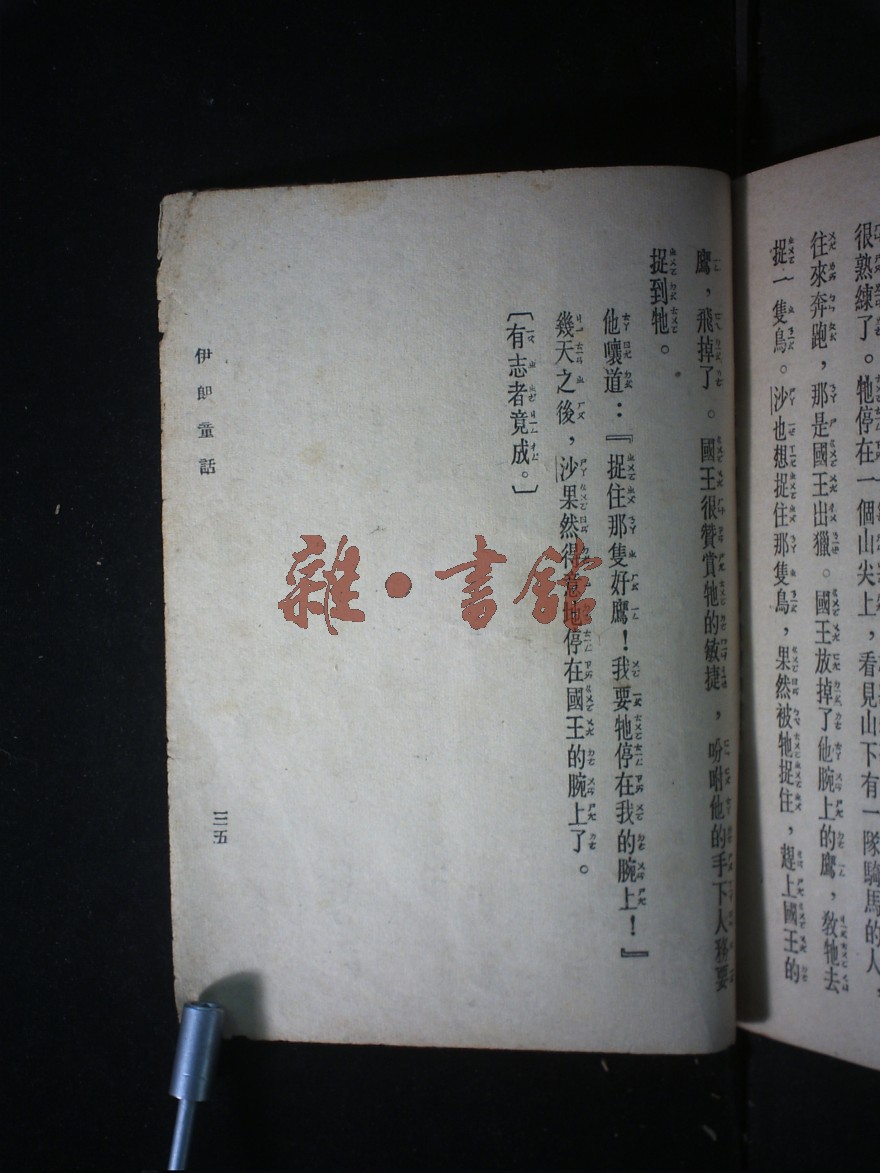 很熟練了。牠停在一個山尖上，看見山下有一隊騎馬的人，
往來奔跑，那是國王出獵。國王放掉了他腕上的鷹，教牠去
捉一隻鳥。沙也想捉住那隻鳥，果然被牠捉住，趕上國王的
鷹，飛掉了。國王很贊賞牠的敏捷，吩咐他的手下人務要
捉到牠。
他嚷道：『捉住那隻好鷹！我要牠停在我的腕上！』
幾天之後，沙果然得意地停在國王的腕上了。
〔有志者竟成。〕
伊郎童話
三五
雜·書館